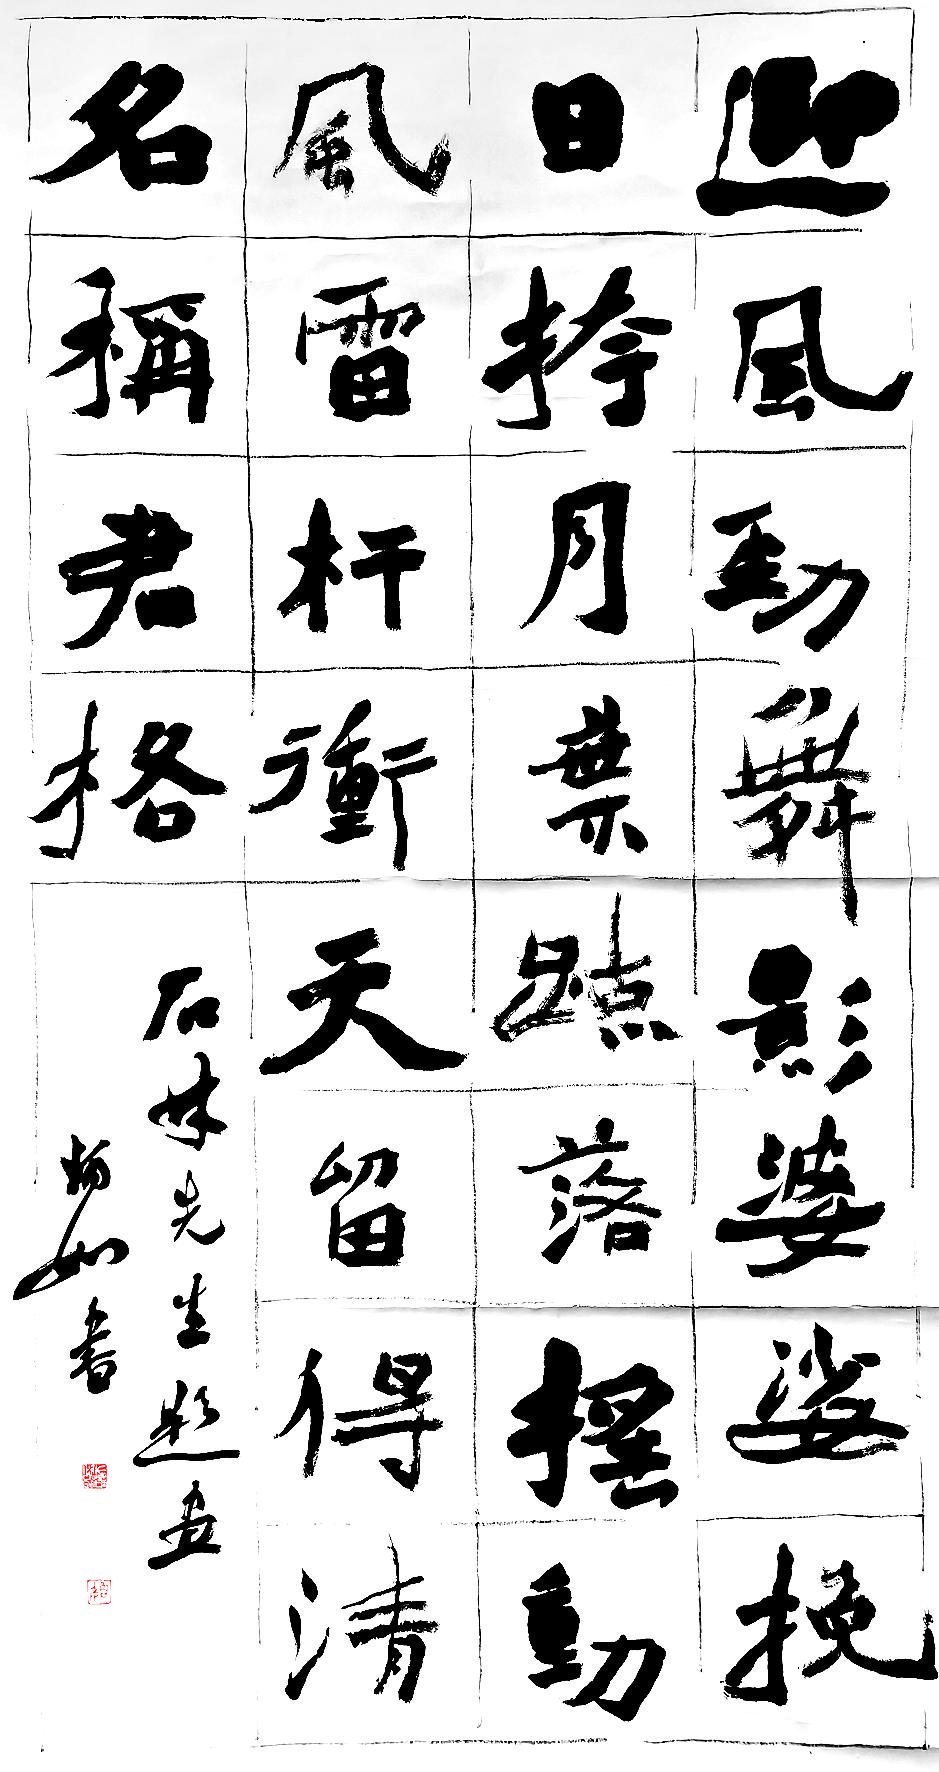 迎風勁舞影婆娑挽
日挎月葉落摇動
風雷杆衝天留得清
名稱君格
石林先生题画
楊如書